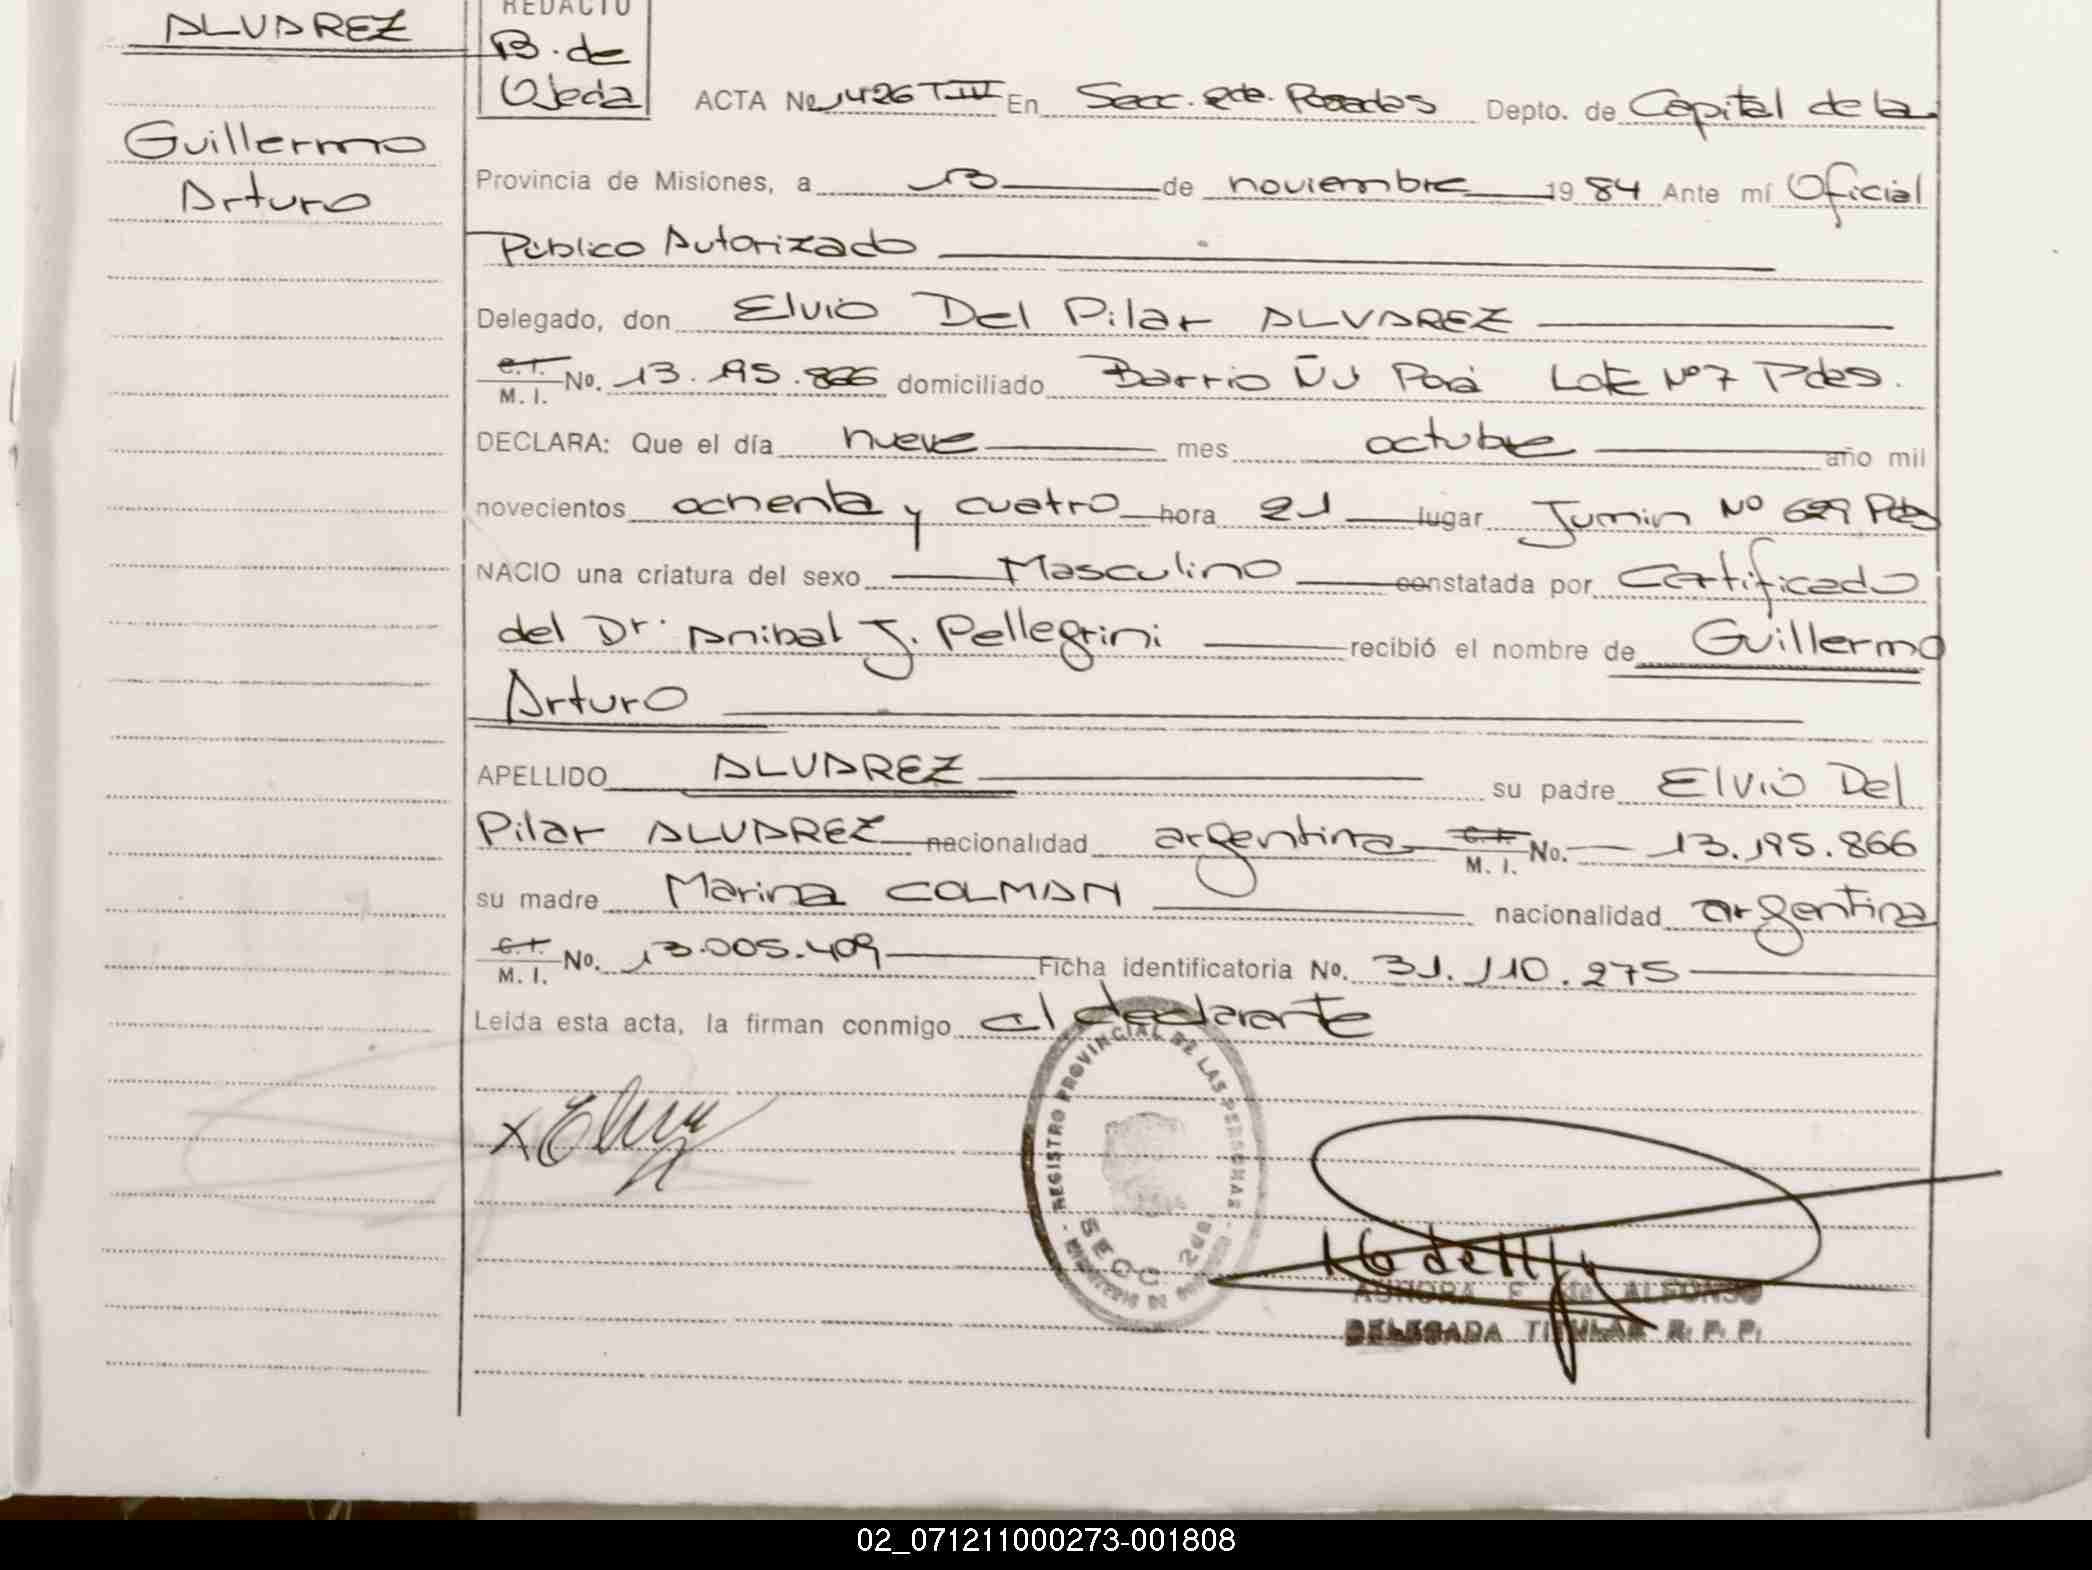 ALVAREZ
Guillermo
Arturo
REDACTO
B. de
Ojeda
ACTA No 1426 T IV En Secc. 2da. Posadas Depto. de Capital de la
Provincia de Misiones, a 13 de noviembre 1984 Ante mí Oficial
Público Autorizado
Delegado, don Elvio Del Pilar ALVAREZ
C.I. M.I. No. 13.195.866 domiciliado Barrio Ñu Porá Lote Nº 7 Pdas.
DECLARA: Que el día nueve mes octubre año mil
novecientos ochenta y cuatro hora 21 lugar Junin Nº 629 Pdas
NACIO una criatura del sexo Masculino constatada por Certificado
del Dr. Anibal J. Pellegrini recibió el nombre de Guillermo
Arturo
APELLIDO ALVAREZ su padre Elvio Del
Pilar ALVAREZ nacionalidad argentina C.I. M.I. No. 13.195.866
su madre Marina COLMAN nacionalidad argentina
C.I. M.I. No. 13.005.409 Ficha identificatoria No. 31.110.275
Leída esta acta, la firman conmigo el declarante
REGISTRO PROVINCIAL DE LAS PERSONAS
SECC. 2da
AURORA F. de ALFONSO
DELEGADA TITULAR R. P. P.
02_071211000273-001808